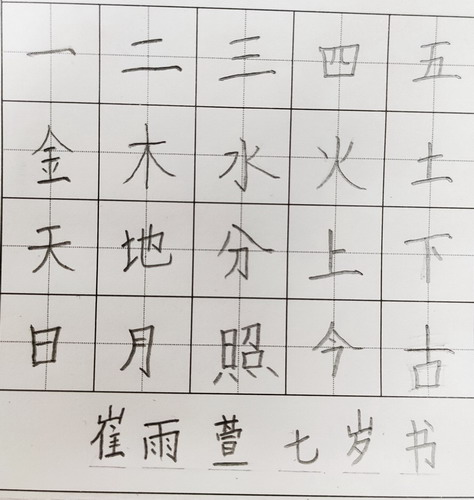 一二三四五
金木水火土
天地分上下
日月照今古
崔雨萱七岁书